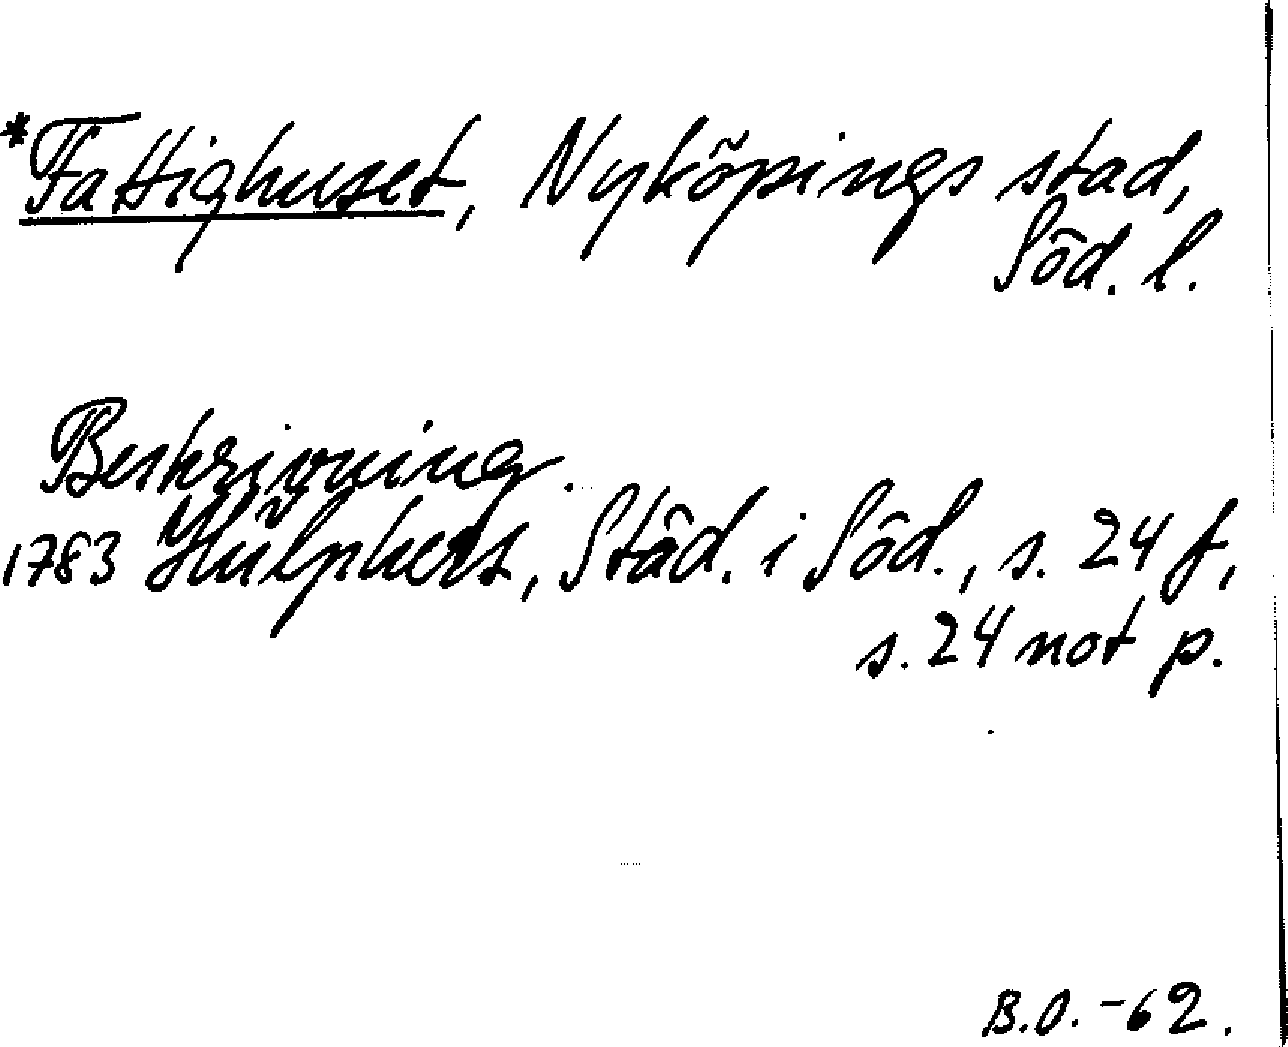 *Fattighuset, Nyköpings stad,
Söd. l.
Beskrivning.
1783 Hülphers, Städ. i Söd., s. 24 f,
s. 24 not p.
B.O. -62.